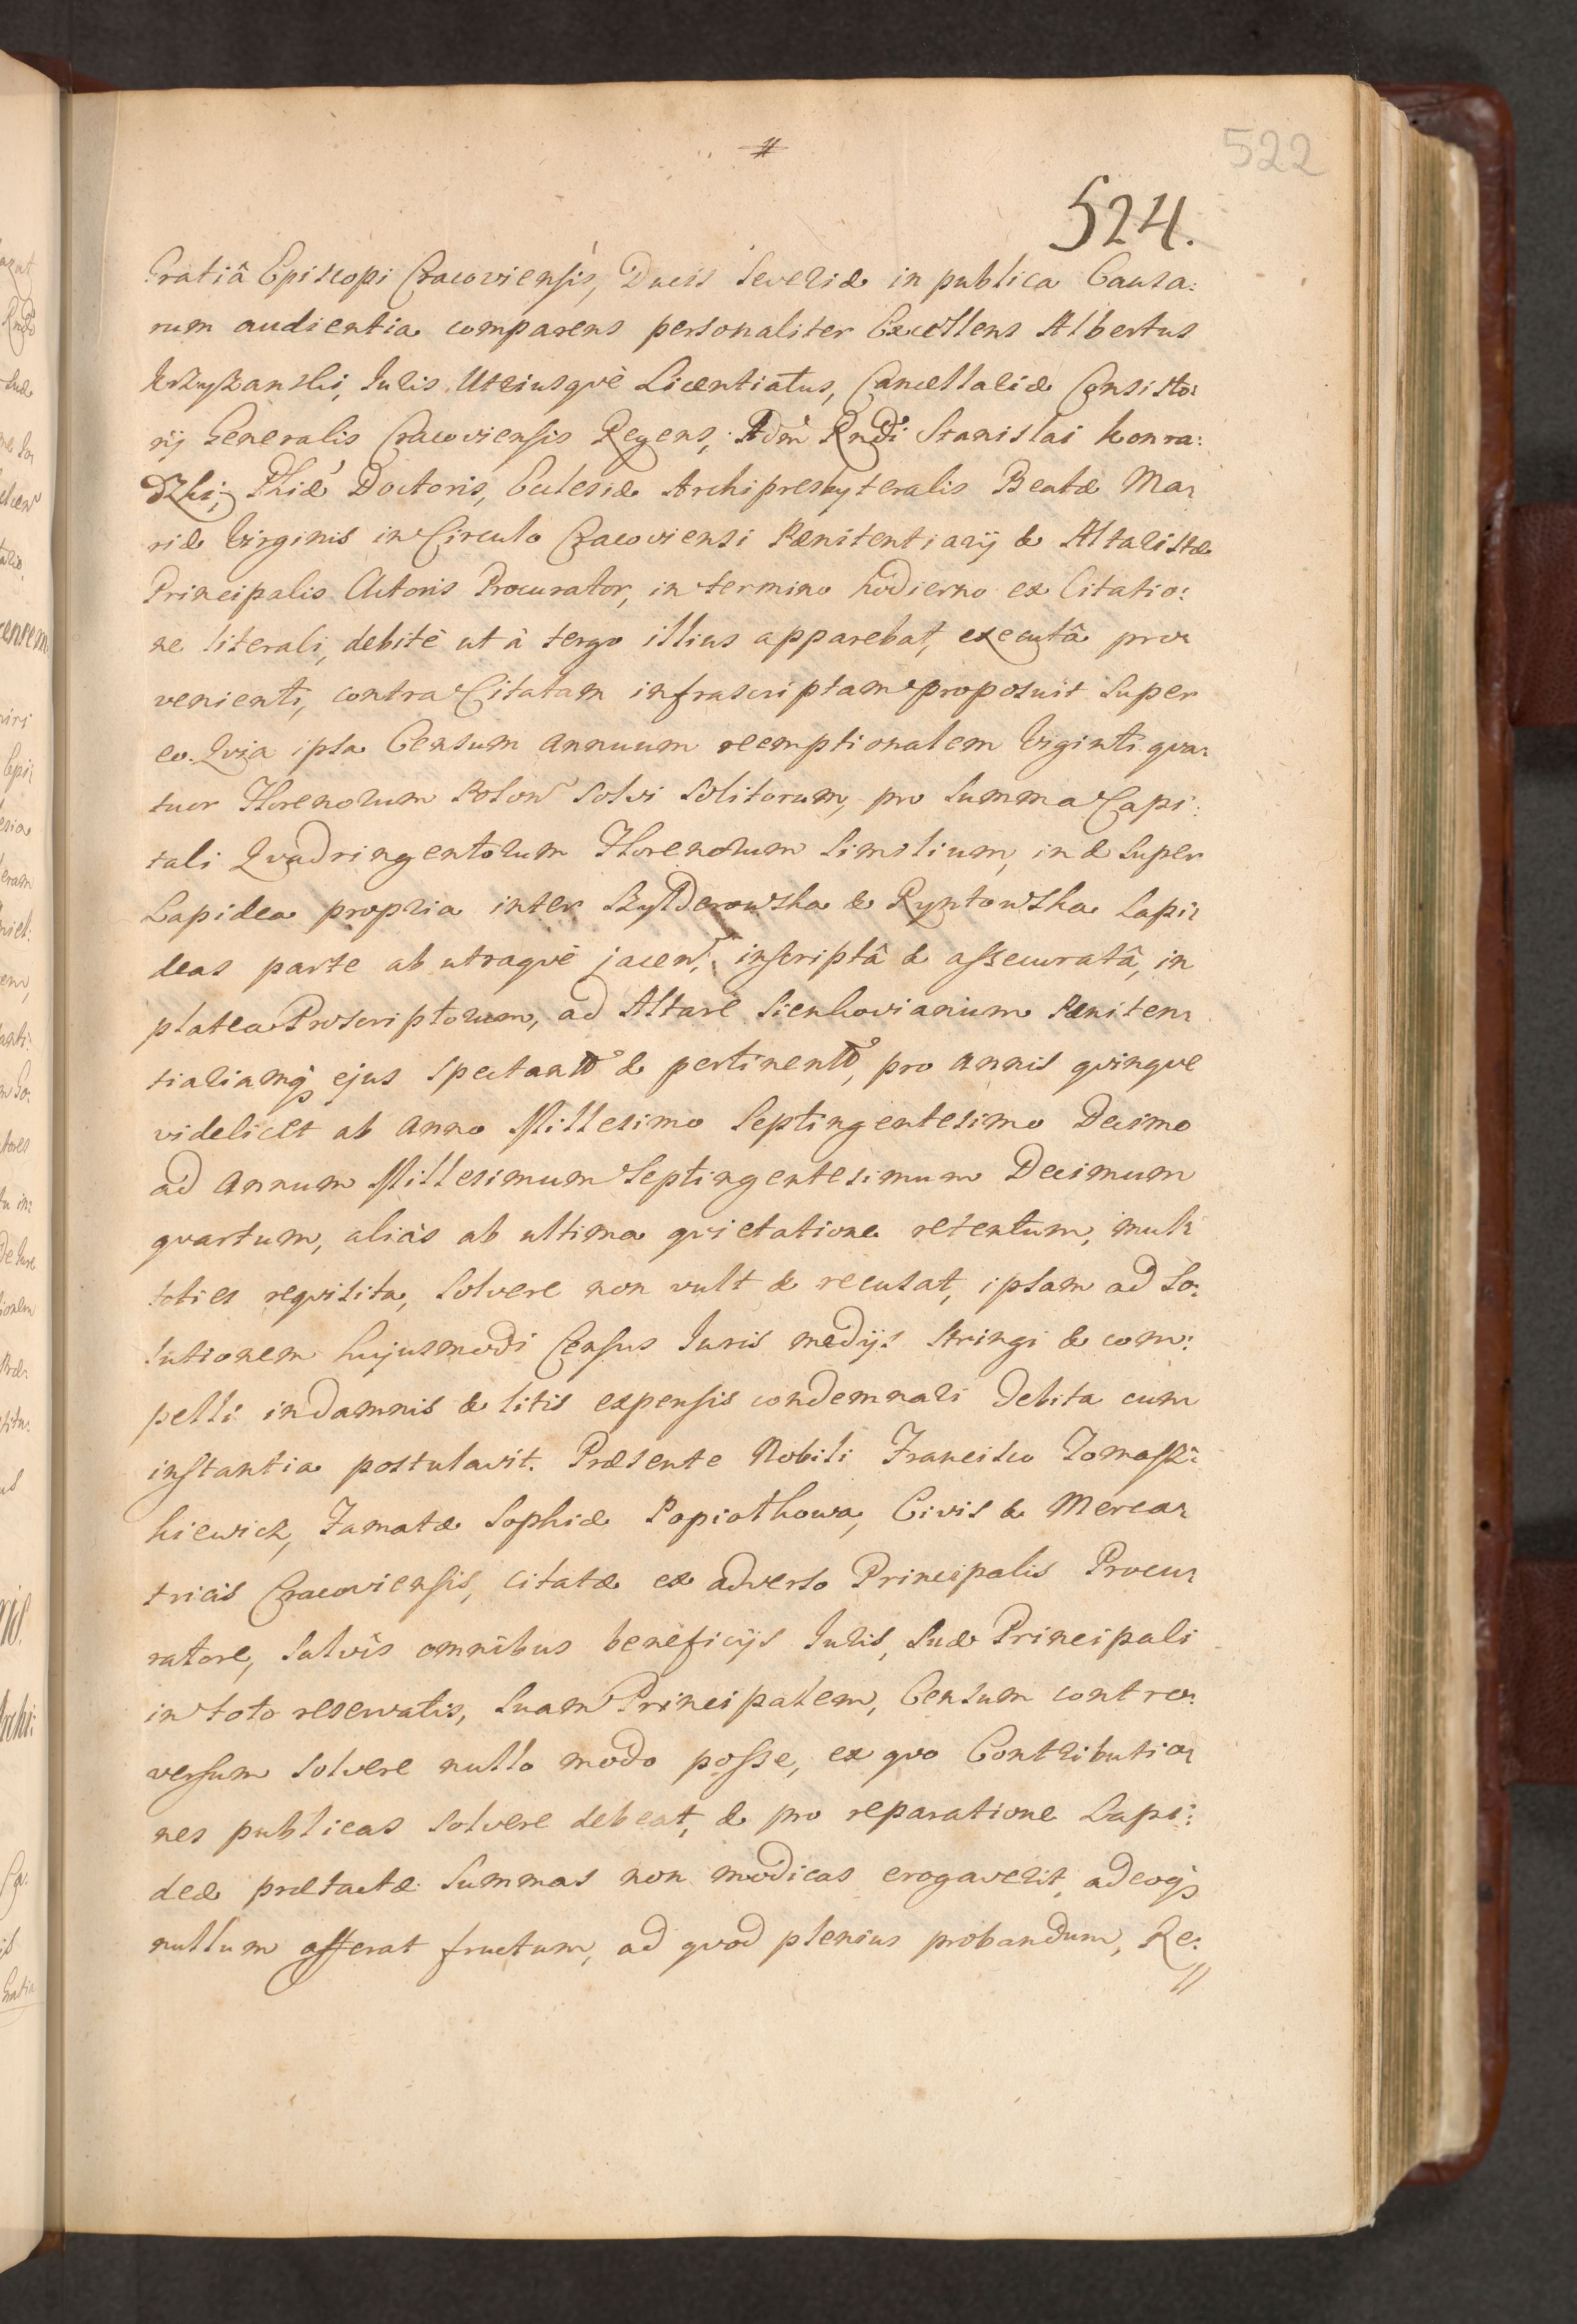 522
#
524.
Gratiâ Episcopi Cracoviensis, Ducis Severiæ in publica Causa:
rum audientia comparens personaliter Excellens Albertus
Krzyżanski, Iuris Utriusqvè Licentiatus, Cancellariæ Consisto:
rij Generalis Cracoviensis Regens, Adm Rndi Stanislai Konra:
dzki, Phiæ Doctoris, Ecclesiæ Archipresbyteralis Beatæ Ma:
riæ Virginis in Circulo Cracoviensi Pænitentiarij & Altaristæ
Principalis Actoris Procurator, in termino hodierno ex Citatio:
ne literali, debitè ut à tergo illius apparebat, executâ pro:
venienti, contra Citatam infrascriptam proposuit super
eo. Qvia ipsa Censum annuum reemptionalem Viginti qva:
tuor Florenorum Polon solvi solitorum, pro summa Capi:
tali Qvadringentorum Florenorum similium, in & super
Lapidea propria inter Szylderowska & Ryntowska Lapi:
deas parte ab utraqvè jacen, inscriptâ & assecuratâ, in
platea Proscriptorum, ad Altare Sienkovianum Pæniten:
tiariamq ejus spectan & pertinen, pro annis qvinqve
videlicet ab Anno Millesimo Septingentesimo Decimo
ad Annum Millesimum Septingentesimum Decimum
qvartum, aliàs ab ultima qvietatione retentum, mul:
toties reqvisita, solvere non vult & recusat, ipsam ad so:
lutionem hujusmodi Census Iuris medijs stringi & com:
pelli in damnis & litis expensis condemnari debita cum
instantia postulavit. Præsente Nobili Francisco Tomasz:
kiewicz, Famatæ Sophiæ Popiołkowa, Civis & Merca:
tricis Cracoviensis, citatæ ex adverso Principalis Procu:
ratore, salvis omnibus beneficijs Iuris, suæ Principali
in toto reservatis, suam Principalem, Censum contro:
versum solvere nullo modo posse, ex qvo Contributio:
nes publicas solvere debeat, & pro reparatione Lapi:
deæ prætactæ summas non modicas erogaverit, adeoq
nullum afferat fructum, ad qvod plenius probandum, Re: